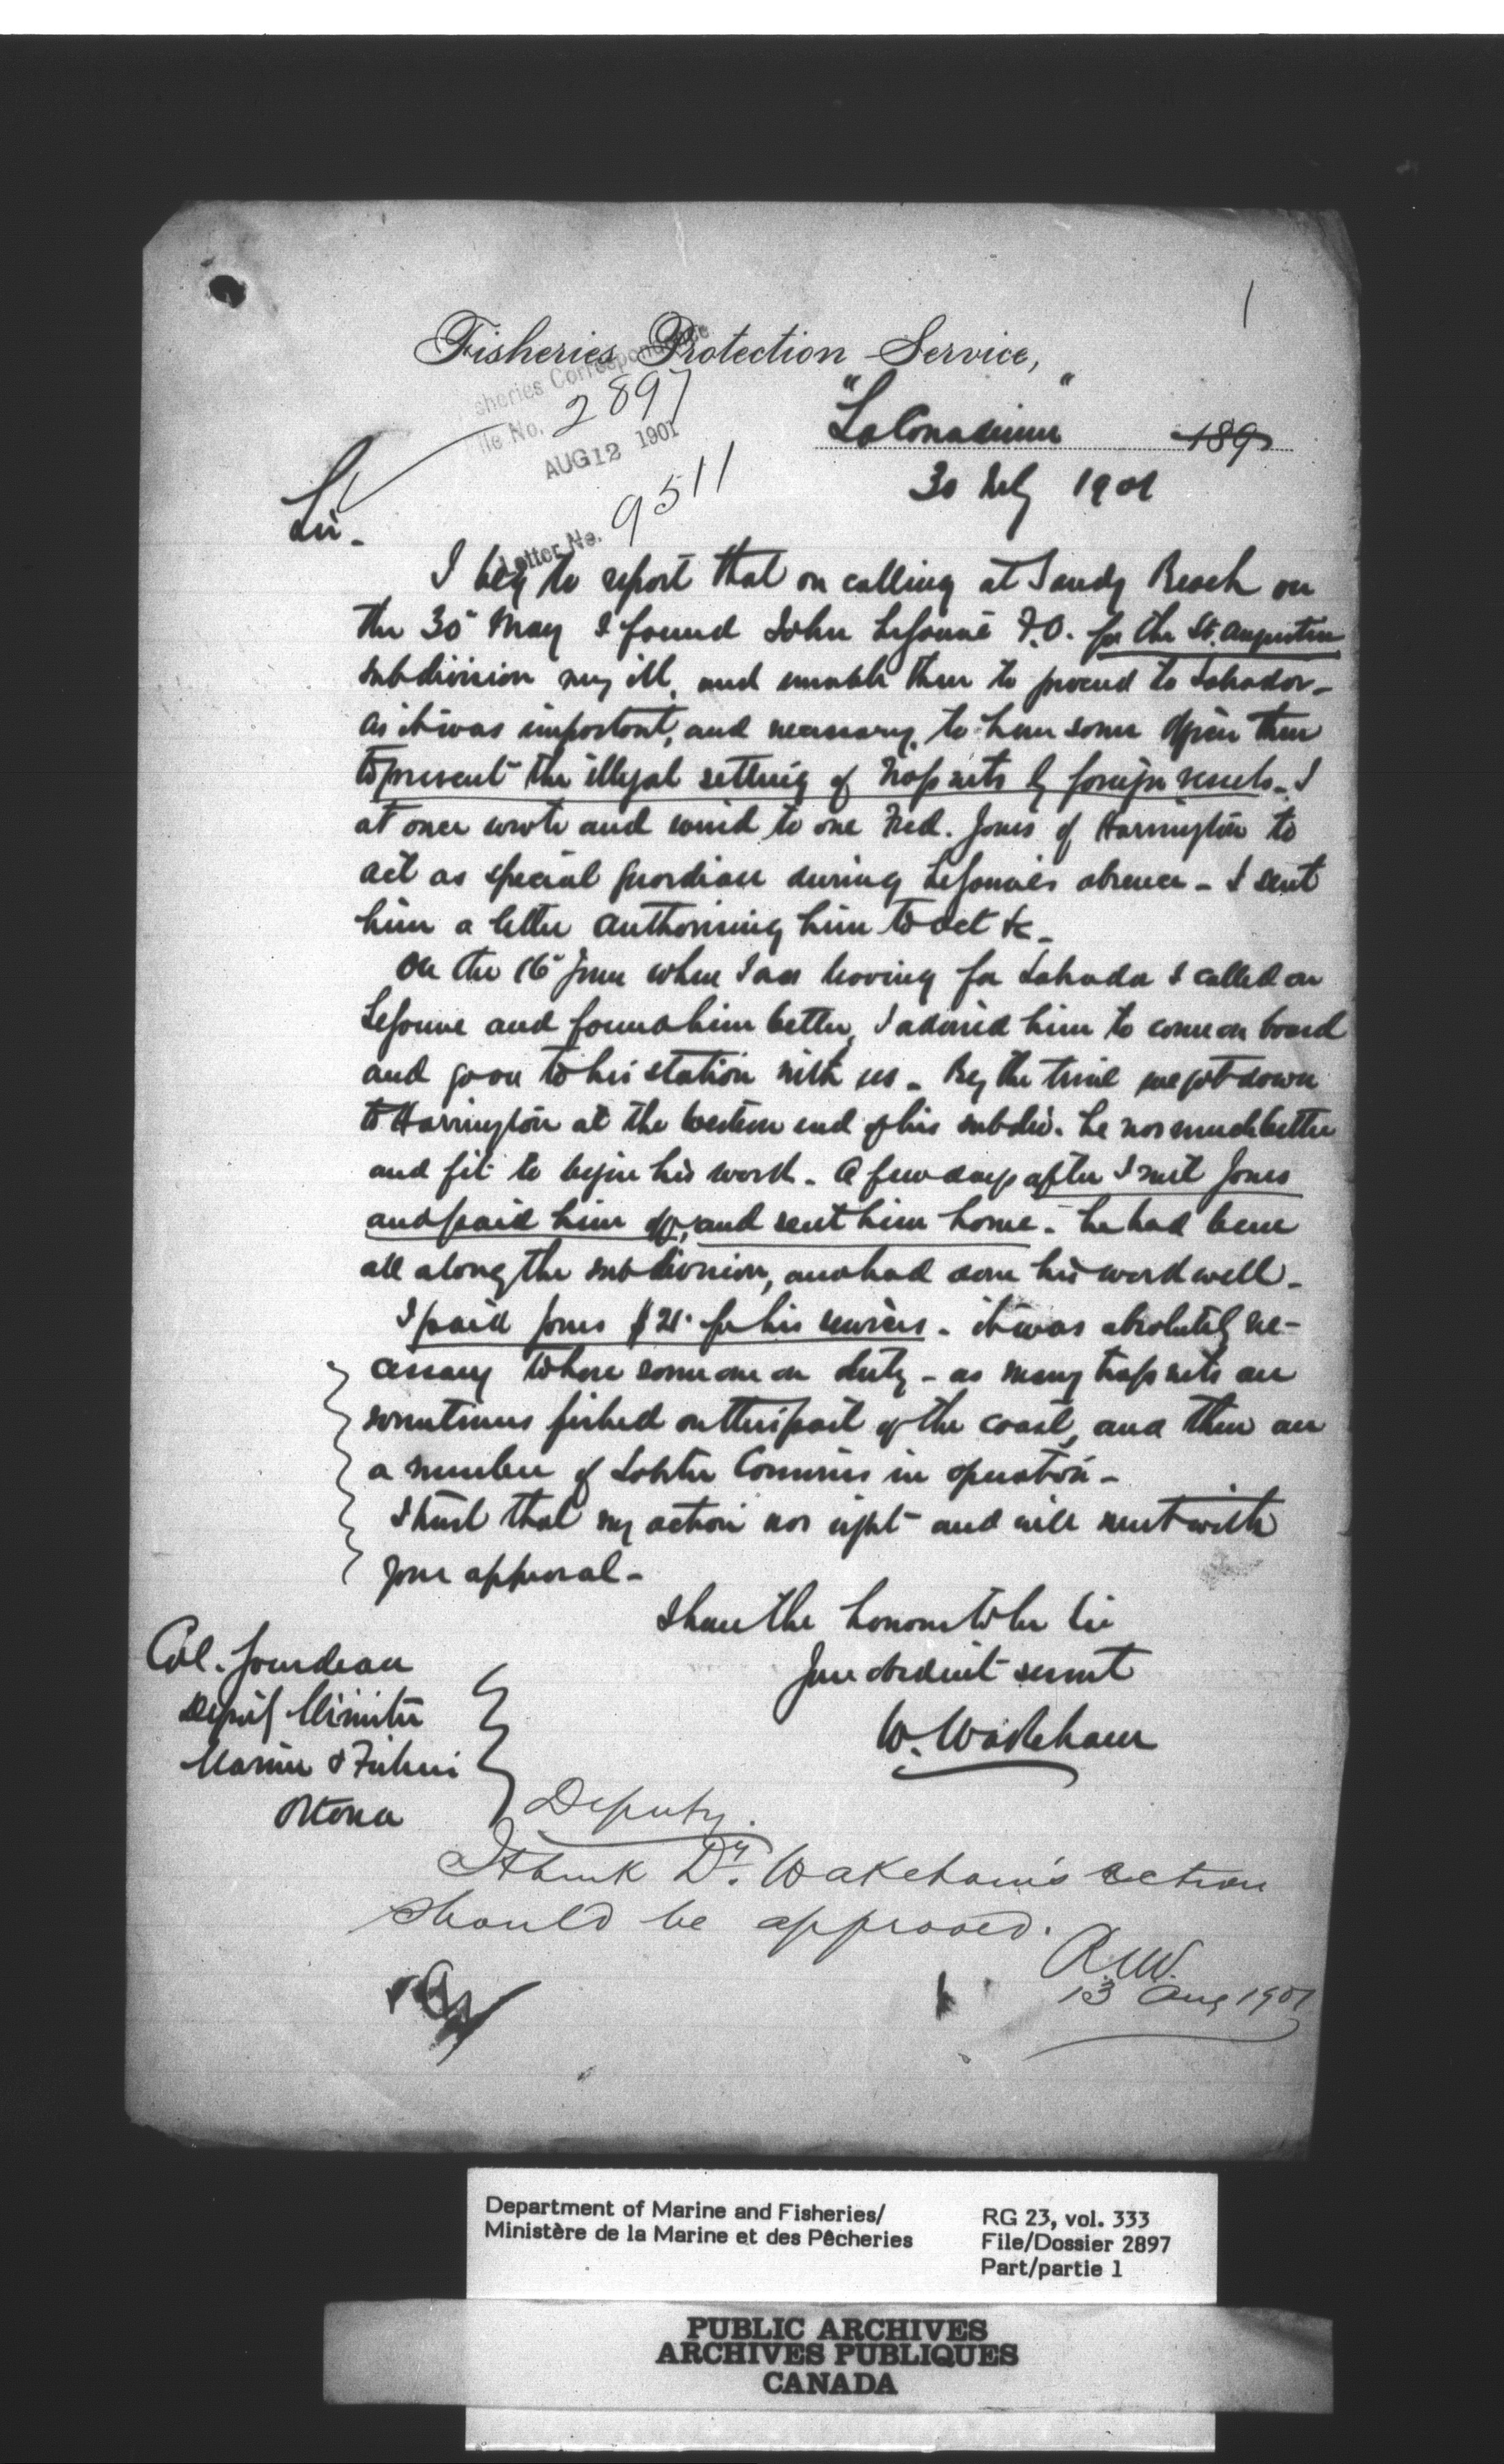 1
Fisheries Protection Service,
Fisheries Correspondence
File No. 2897
AUG 12 1901
Letter No. 9511
"La Canadienne" 189
30 July 1901
Sir.
I beg to report that on calling at Sandy Beach on
the 30 May I found John F.O. for the St. Augustine
subdivision very ill, and unable then to proceed to Labrador -
as it was important, and necessary, to have some officer there
to prevent the illegal setting of trap nets by foreign vessels. I
at once wrote and wired to one Fred. Jones of Harrington to
act as special guardian during absence - I sent
him a letter authorising him to act &c -
On the 16 June when I was leaving for Labrador I called on
and found him better, I advised him to come on board
and go on to his station with us - By the time we got down
to Harrington at the Western end of his subdiv. he was much better
and fit to begin his work. A few days after I met Jones
and paid him off, and sent him home - he had been
all along the subdivision, and had done his work well -
I paid Jones $21. for his services - it was absolutely ne-
cessary to have some one on duty - as many trap nets are
sometimes fished on this part of the coast, and there are
a number of Lobster Canneries in operation -
I trust that my action was right and will meet with
your approval -
I have the honour to be Sir
Your obedient servant
W. Wakeham
Col. Gourdeau
Deputy Minister
Marine & Fisheries
Ottawa
Deputy.
I think Dr. Wakeham's action
should be approved.
13 Aug 1901
Department of Marine and Fisheries/
Ministère de la Marine et des Pêcheries
RG 23, vol. 333
File/Dossier 2897
Part/partie 1
PUBLIC ARCHIVES
ARCHIVES PUBLIQUES
CANADA